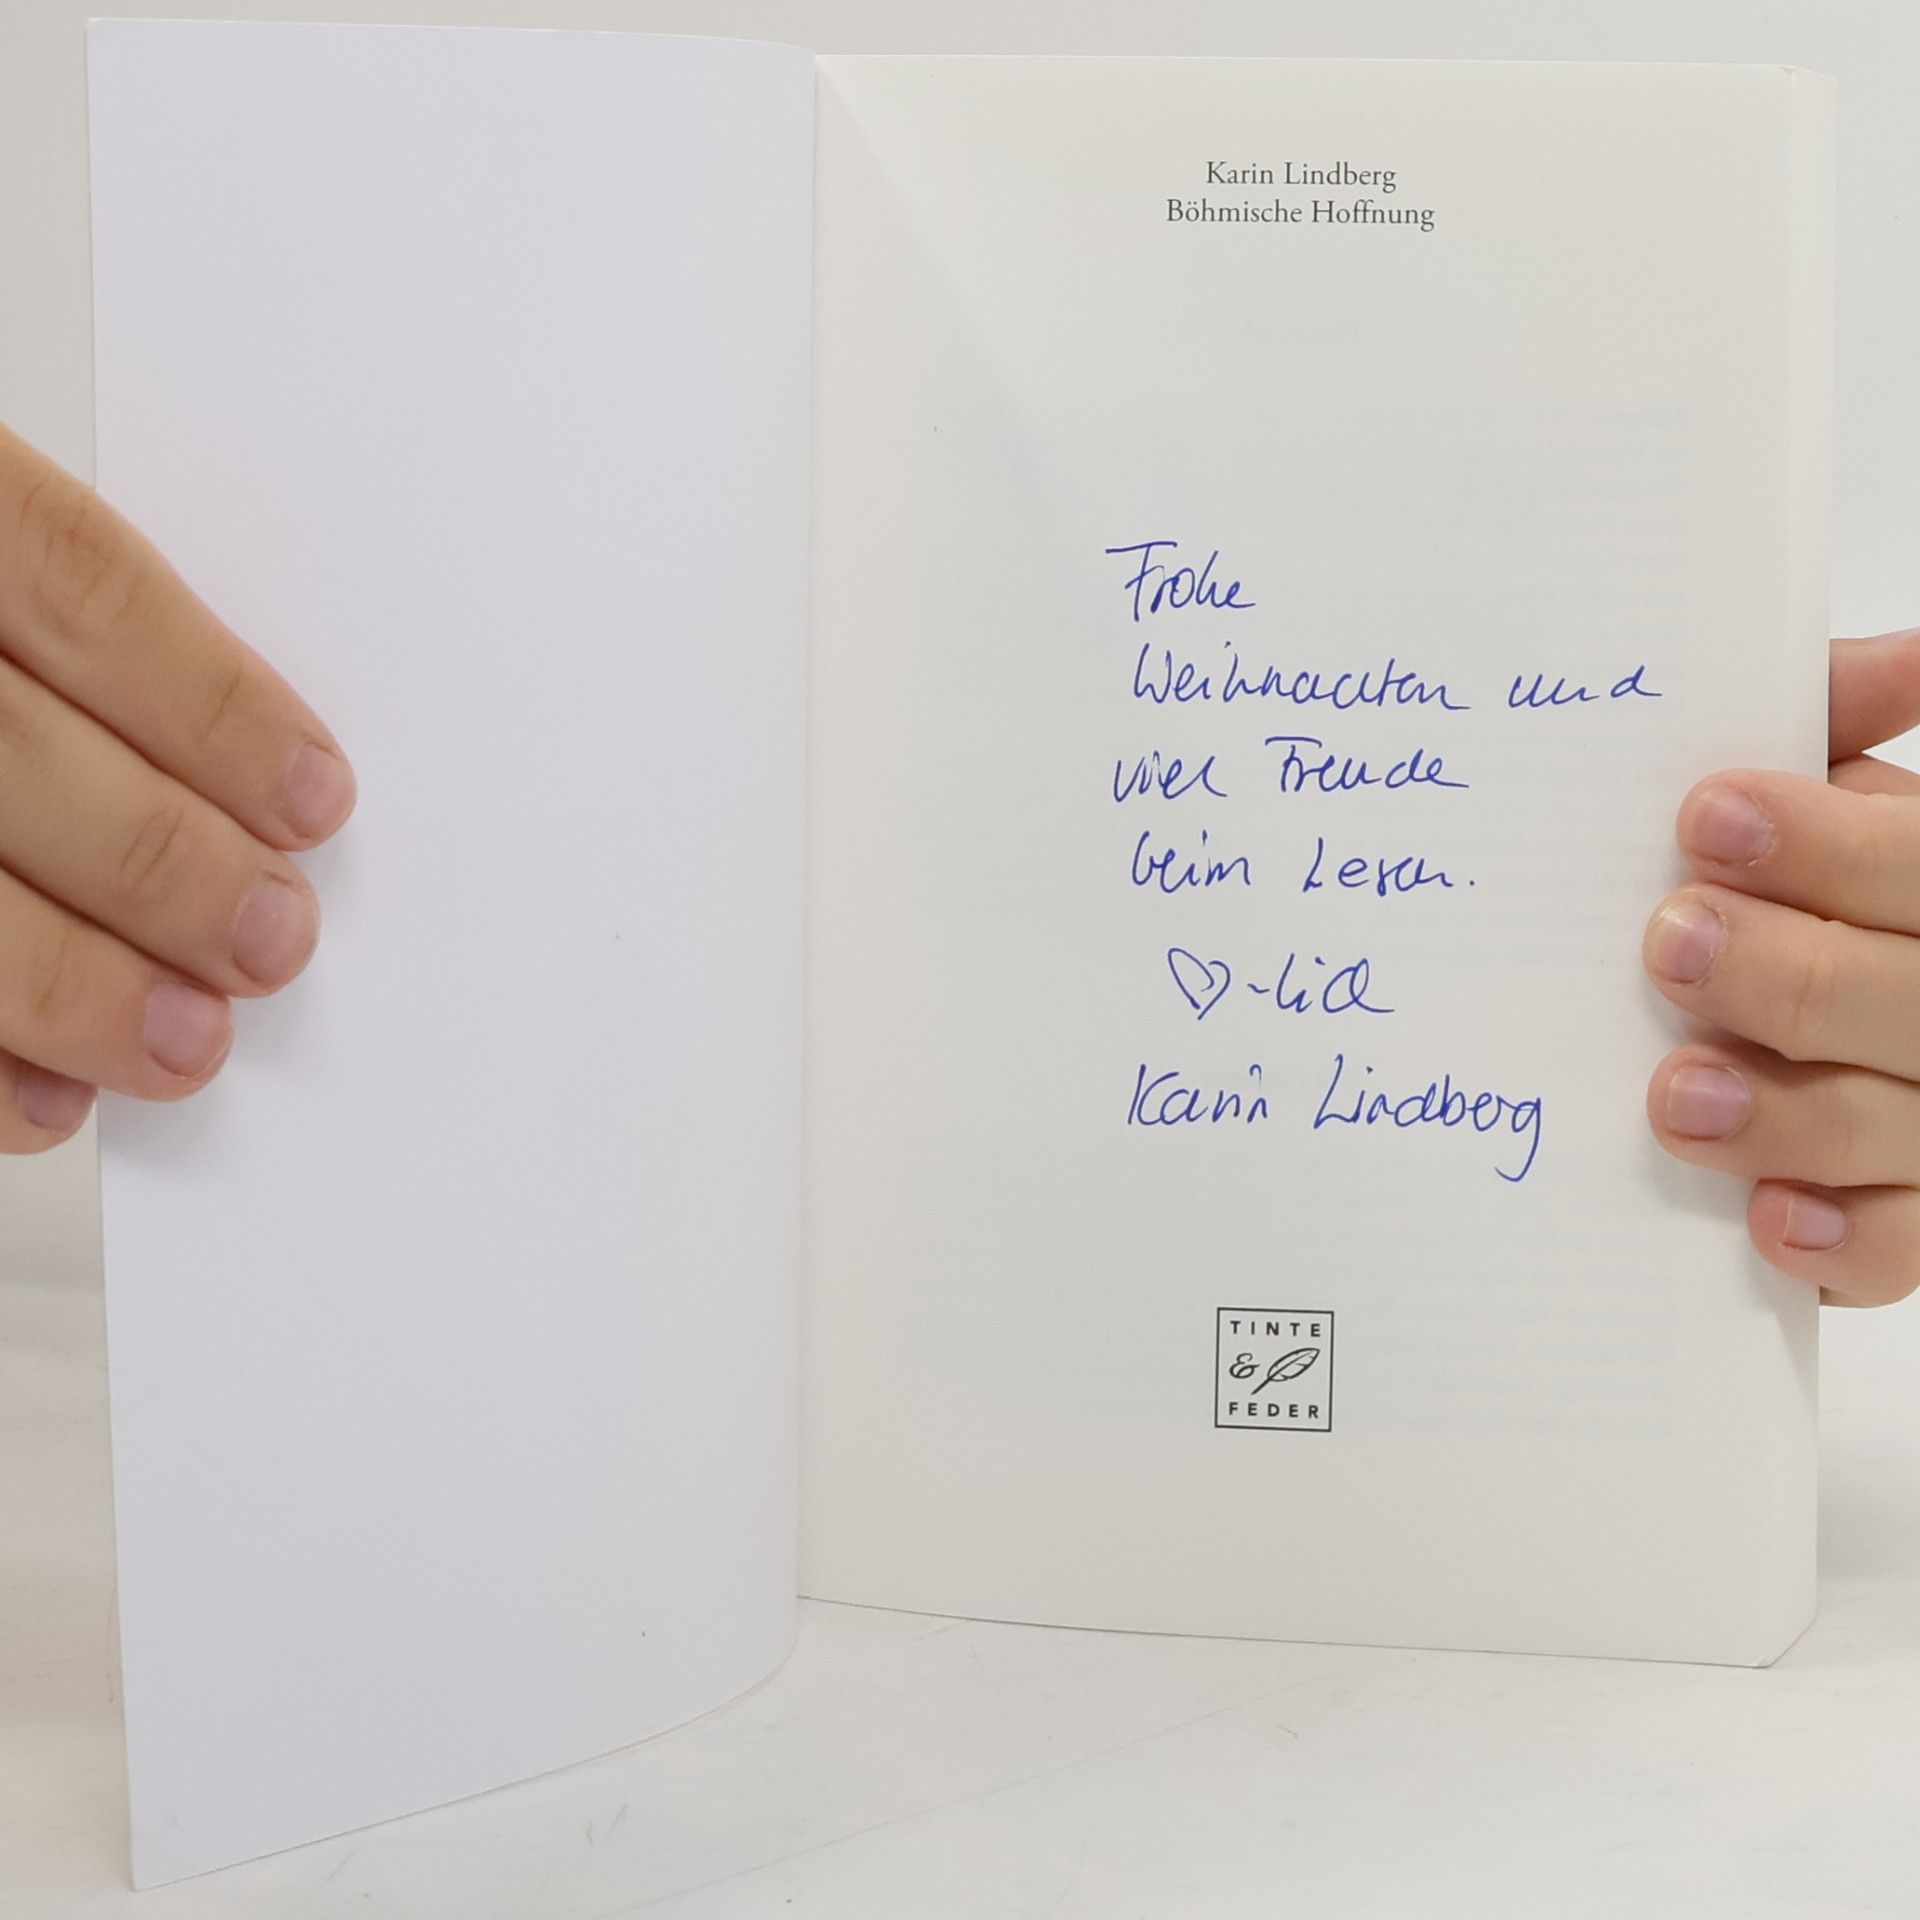 Karin Lindberg
Böhmische Hoffnung
Frohe
Weihnachten und
viel Freude
beim Lesen.
♡-lich
Karin Lindberg
TINTE
&
FEDER